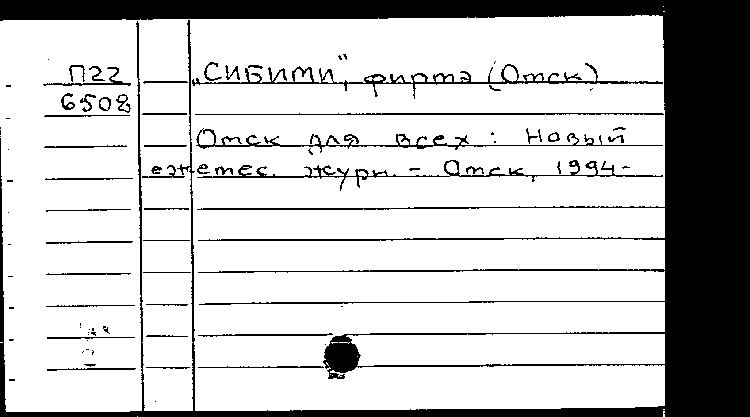 П22 „СИБИМИ", фирма (Омск)
6508
Омск для всех : Новый
ежемес. журн. - Омск, 1994-